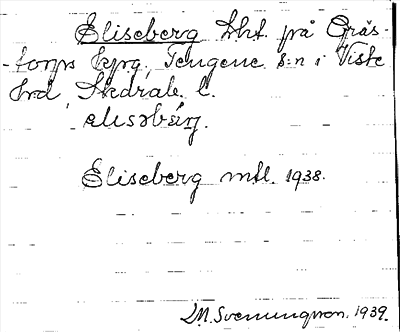 Eliseberg Lht. på Grås-
-torps kprg, Tengene s:n i Viste
hrd, Skdrab. l.
elisabärj.
Eliseberg mtl. 1938.
D.M. Svenungsson. 1939.